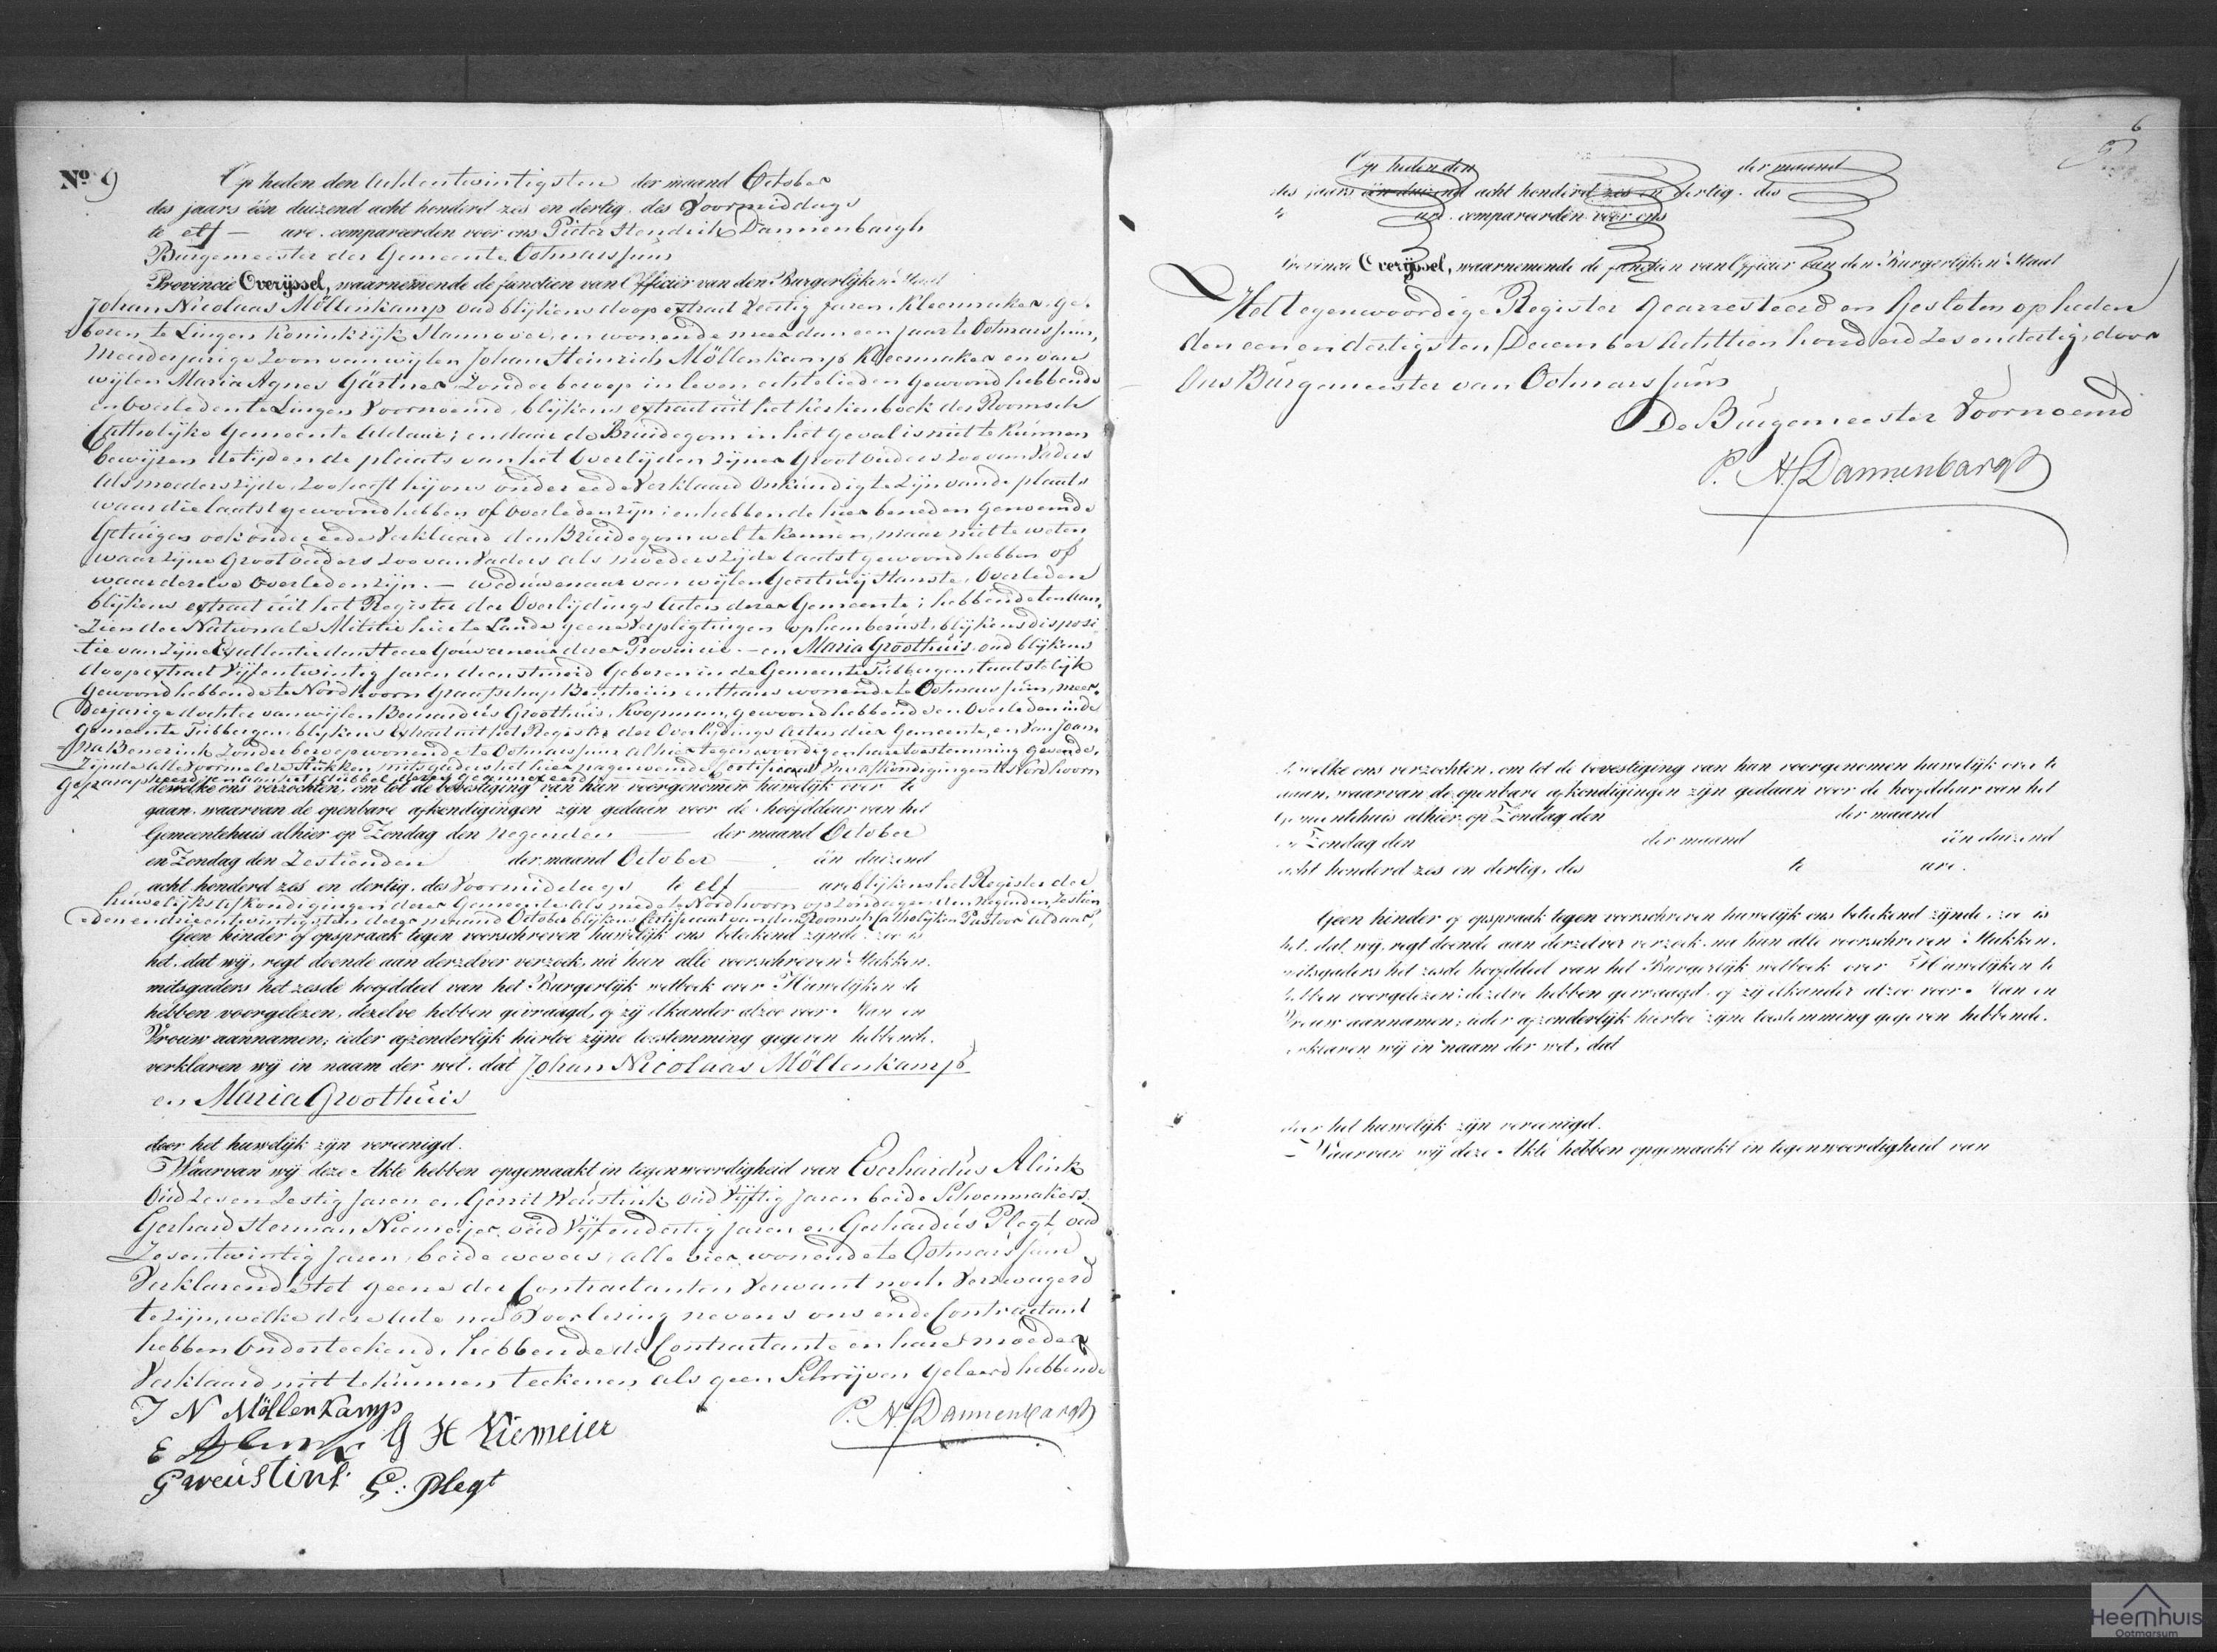 No 9
Op heden den achtentwintigsten der maand October
des jaars één duizend acht honderd zes en dertig, des Voormiddags
te elf — ure, compareerden voor ons Pieter Hendrik Dannenbargh
Burgemeester der Gemeente Ootmarssum
Provincie Overijssel, waarnemende de functien van Officier van den Burgerlijken Staat
Johan Nicolaas Möllenkamp oud blijkens doopextract Veertig Jaren, Kleermaker, Ge-
boren te Lingen Koninkrijk Hannover, en wonende meer dan een Jaar te Ootmarssum,
Meerderjarige Zoon van wijlen Johan Heinrich Möllenkamp Kleermaker en van
wijlen Maria Agnes Gärtner Zonder beroep in leven echtelieden Gewoond hebbende
en Overleden te Lingen Voornoemd, blijkens extract uit het Kerkenboek der Roomsch
Catholijke Gemeente Aldaar; en daar de Bruidegom in het geval is niet te Kunnen
bewijzen de tijd en de plaats van het Overlijden Zijner Grootouders Zoo van Vaders
Als moeders zijde, Zoo heeft hij ons onder eede Verklaard Onkundig te Zijn van de plaats
waar die laatst gewoond hebben of Overleden zijn; en hebbende hier beneden Genoemde
Getuigen ook onder eede Verklaard den Bruidegom wel te Kennen, maar niet te weten
waar Zijne Grootouders Zoo van Vaders als moeders Zijde laatst gewoond hebben of
waar dezelve Overleden zijn. — weduwenaar van wijlen Geertruij Hanste, Overleden
blijkens extract uit het Register der Overlijdings Acten dezer Gemeente; hebbende ten Aan-
Zien der Nationale Militie hier te Lande geene Verpligtingen op hem berust, blijkens disposi-
tie van Zijne Excellentie den Heere Gouverneur dezer Provincie. — en Maria Groothuis oud blijkens
doopextract Vijfentwintig Jaren dienstmeid Geboren in de Gemeente Tubbergen laatstelijk
Gewoond hebbende te Nordhoorn Graafschap Bentheim en thans wonende te Ootmarssum, meer-
derjarige dochter van wijlen Bernardus Groothuis, Koopman, gewoond hebbende en Overleden in de
Gemeente Tubbergen, blijkens Extract uit het Register der Overlijdings Acten dier Gemeente, en Van Joan-
na Benerink Zonder beroep wonende te Ootmarssum alhier tegenwoordig en hare toestemming gevende,
Zijnde alle Voormelde Stukken mitsgaders het hier nagenoemde Certificaat Van afkondigingen te Nordhoorn
Geparapheerd en aan het dubbel dezer geannexeerd
dewelke ons verzochten, om tot de bevestiging van hun voorgenomen huwelijk over te
gaan, waarvan de openbare afkondigingen zijn gedaan voor de hoofddeur van het
Gemeentehuis alhier op Zondag den negenden — der maand October
en Zondag den Zestienden der maand October — één duizend
acht honderd zes en dertig, des Voormiddags te elf — ure blijkens het Register der
huwelijks Afkondigingen dezer Gemeente als mede te Nordhoorn op Zondagen den negenden, Zestien-
den en drieentwintigsten dezer maand October blijkens Certificaat van den Roomsch Catholijken Pastoor Aldaar,
Geen hinder of opspraak tegen voorschreven huwelijk ons betekend zijnde, zoo is
het, dat wij, regt doende aan derzelver verzoek, na hun alle voorschreven Stukken,
mitsgaders het zesde hoofddeel van het Burgerlijk wetboek over Huwelijken te
hebben voorgelezen, dezelve hebben gevraagd, of zij elkander alzoo voor Man en
Vrouw aannamen; ieder afzonderlijk hiertoe zijne toestemming gegeven hebbende,
verklaren wij in naam der wet, dat Johan Nicolaas Möllenkamp
en Maria Groothuis
door het huwelijk zijn vereenigd.
Waarvan wij deze Akte hebben opgemaakt in tegenwoordigheid van Everhardus Alink
Oud Zes en Zestig Jaren en Gerrit Weustink oud Vijftig Jaren beide Schoenmakers.
Gerhard Herman Niemeijer, oud Vijfendertig Jaren en Gerhardus Plegt oud
Zesentwintig Jaren, beide wevers, alle vier wonende te Ootmarssum
Verklarende tot geene der Contractanten Verwant noch Verzwagerd
te zijn, welke deze Acte na Voorlezing nevens ons en de Contractant
hebben Onderteekend, hebbende de Contractante en hare moeder
Verklaard niet te kunnen teekenen als geen Schrijven Geleerd hebbende
J N Möllenkamp
P. H. Dannenbargh
E Alink G H Niemeier
G weustink G: Plegt
6
Op heden den der maand
des jaars één duizend acht honderd zes en dertig, des
te ure, compareerden voor ons
Provincie Overijssel, waarnemende de functien van Officier van den Burgerlijken Staat
Het tegenwoordige Register Gearresteerd en Gesloten op heden
den een en dertigsten December Achttien honderd Zes en dertig, door
Ons Burgemeester van Ootmarssum
De Burgemeester Voornoemd
P. H. Dannenbargh
dewelke ons verzochten, om tot de bevestiging van hun voorgenomen huwelijk over te
gaan, waarvan de openbare afkondigingen zijn gedaan voor de hoofddeur van het
Gemeentehuis alhier op Zondag den der maand
en Zondag den der maand één duizend
acht honderd zes en dertig, des te ure.
Geen hinder of opspraak tegen voorschreven huwelijk ons betekend zijnde, zoo is
het, dat wij, regt doende aan derzelver verzoek, na hun alle voorschreven Stukken,
mitsgaders het zesde hoofddeel van het Burgerlijk wetboek over Huwelijken te
hebben voorgelezen, dezelve hebben gevraagd, of zij elkander alzoo voor Man en
Vrouw aannamen; ieder afzonderlijk hiertoe zijne toestemming gegeven hebbende,
verklaren wij in naam der wet, dat
door het huwelijk zijn vereenigd.
Waarvan wij deze Akte hebben opgemaakt in tegenwoordigheid van
Heemhuis
Ootmarsum